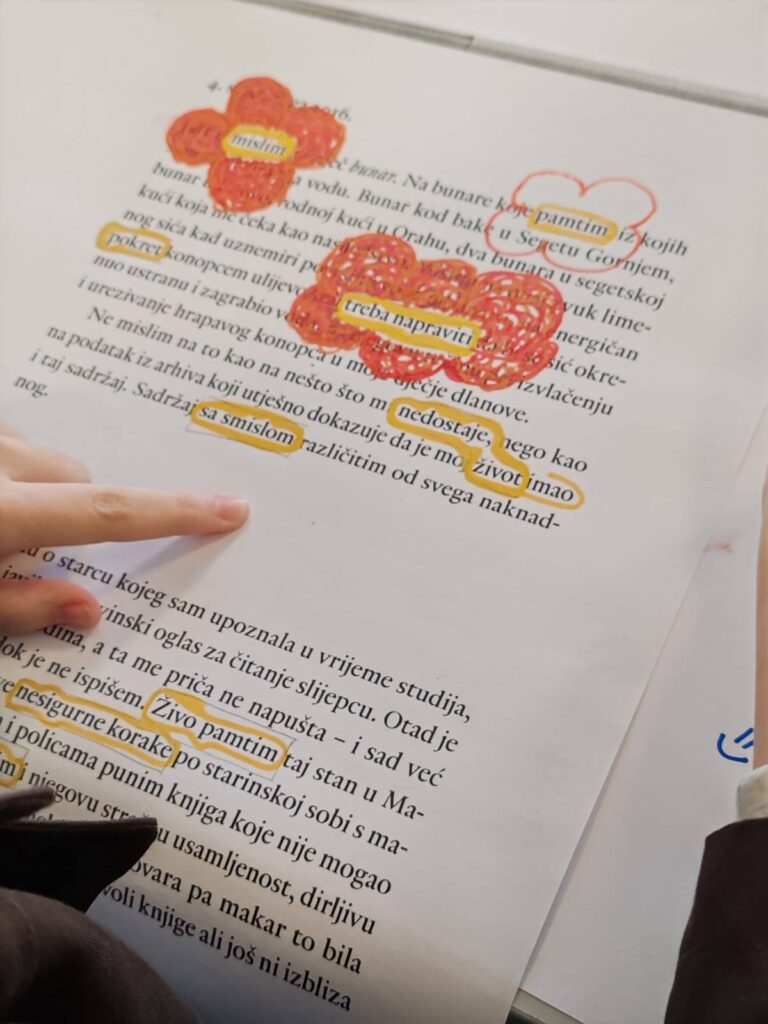 4. 2016.
mislim bunar. Na bunare koje pamtim iz kojih
bunar vodu. Bunar kod bake u Segetu Gornjem,
kući koja me čeka kao rodnoj kući u Orahu, dva bunara u segetskoj
nog sića kad uznemiri vuk lime-
pokret konopcem nergičan
nuo ustranu i zagrabio treba napraviti sić okre-
i urezivanje hrapavog konopca u dječje dlanove. izvlačenju
Ne mislim na to kao na nešto što m nedostaje, nego kao
na podatak iz arhiva koji utješno dokazuje da je moj život imao
i taj sadržaj. Sadržaj sa smislom različitim od svega naknad-
nog.
o starcu kojeg sam upoznala u vrijeme studija,
vinski oglas za čitanje slijepcu. Otad je
dina, a ta me priča ne napušta – i sad već
dok je ne ispišem. Živo pamtim taj stan u Ma-
nesigurne korake po starinskoj sobi s ma-
i policama punim knjiga koje nije mogao
m i njegovu usamljenost, dirljivu
ovara pa makar to bila
voli knjige ali još ni izbliza